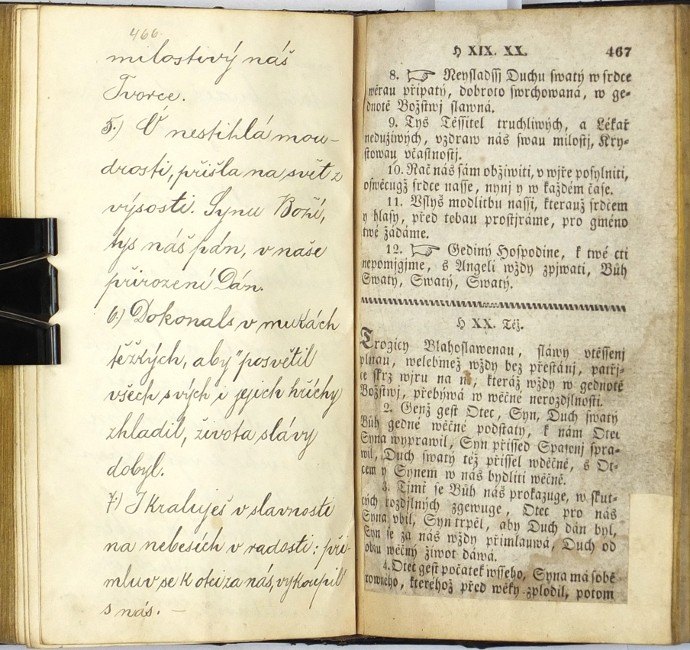 466.
milostivý náš
Tvorce.
5.) Ó nestihlá mou-
drosti, přišla na svět z
výsosti. Synu Boží,
tys náš pán, v naše
přirození Dán.
6.) Dokonals v mukách
těžkých, aby posvětil
všech svých i jejich hříchy
zhladil, života slávy
dobyl.
7.) I kraluješ v slavnosti
na nebesích v radosti: při-
mluv se k otci za nás, vykoupil
s nás. —
H XIX. XX. 467
8. ☞ Neysladssj Duchu swatý w srdce
wěrau připatý, dobroto swrchowaná, w ge-
dnotě Božstwj slawná.
9. Tys Těssitel truchliwých, a Lékař
nedužiwých, vzdraw nás swau milostj, Kry-
stowau včastnostj.
10. Rač nás sám obžiwiti, v wjře posylniti,
oswěcugž srdce nasse, nynj y w každém čase.
11. Vslyš modlitbu nassi, kterauž srdcem
y hlasy, před tebau prostjráme, pro gméno
twé žádáme.
12. ☞ Gediný Hospodine, k twé cti
nepomjgjme, s Angeli wždy zpjwati, Bůh
Swatý, Swatý, Swatý.
H XX. Též.
Trogicy Blahoslawenau, sláwy vtěssenj
plnau, welebmež wždy bez přestánj, patřj-
ce skrz wjru na ni, kteráž wždy w gednotě
Božstwj, přebýwá w wěčné nerozdjlnosti.
2. Genž gest Otec, Syn, Duch swatý
Bůh gedné wěčné podstaty, k nám Otec
Syna wyprawil, Syn přissed Spasenj spra-
wil, Duch swatý též přissel wděčně, s Ot-
cem y Synem w nás bydliti wěčně.
3. Tjmť se Bůh nás prokazuge, w skut-
cých rozdjlných zgewuge, Otec pro nás
Syna vbil, Syn trpěl, aby Duch dán byl,
Syn ge za nás wždy přimlauwá, Duch od
obau wěčný žiwot dáwá.
4. Otec gest počátek wsseho, Syna má sobě
rowného, kterehož před wěky zplodil, potom